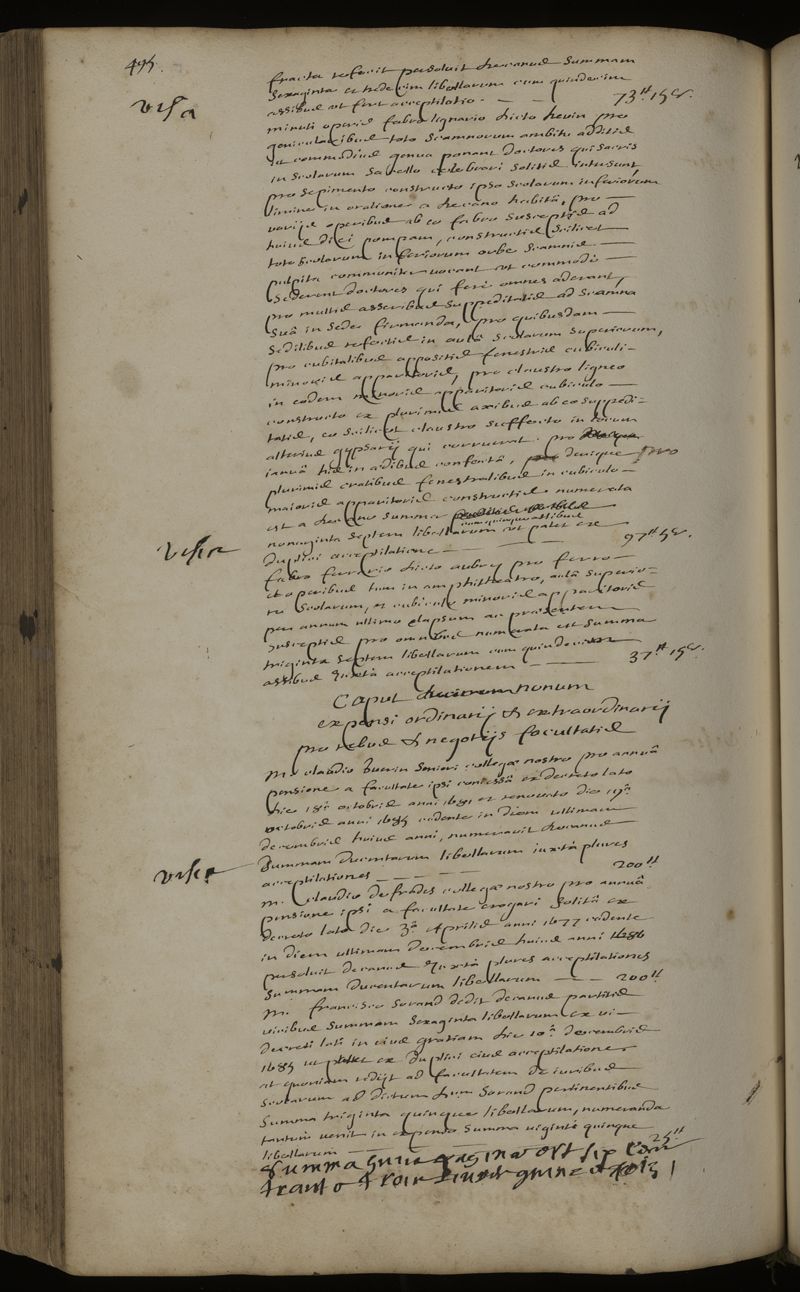 495.
fracta refecit persoluit decanus summam
sexaginta et tredecim libellarum cum quindecim
assibus ut fert acceptilatio. — — 73tt 15s.
visa
minuti operis fabro lignario dicto Hevin pro
genicularibus toto scamnorum ambitu additis
ut commodius genua ponant doctores qui sacris
in scolarum sacello celebrari solitis intersunt
pro sepimento constructo ipso scolarum inferiorum
limine in oratione a decano habitâ, pro —
varijs operibus ab eo fabro susceptis ad
huius diei pompam, constructis scilicet
toto scolarum inferiorum orbe scamnis —
pulpita communiter vocant ut commodè —
sederent doctores qui feré omnes aderant,
pro multis asseribus suppeditatis ad scamna
suâ in sede firmanda, pro quibusdam —
sedilibus refectis in aulâ scolarum superiorum,
pro cubitalibus appositis fenestris cubiculi
minoris apparitoris, pro claustro ligneo
in eodem minoris apparitoris cubiculo —
constructo ex plurimis axibus ab eo suppedi-
tatis, eo scilicet claustro suffecto in locum
alterius gypsarij qui corruerat. pro
ianuâ his in aedibus confectâ, denique pro
plurimis cratibus fenestralibus in cubiculo
maioris apparitoris constructis numerata
est a decano summa
nonaginta septem libellarum cum quinque assibus ut patet ex
duplici acceptilatione — — — 97tt 5s.
visa
fabro ferrario dicto aubry pro ferro —
et operibus tum in amphitheatro, aulâ superio-
re scolarum, et cubiculo minoris apparitoris
per annum ultimo elapsum ac praesentem
susceptis pro omnibus numerata est summa
triginta septem libellarum cum quindecim
assibus juxtà acceptilationem — — 37tt 15s.
Caput nonum
expensi ordinarij et extraordinarij
pro rebus et negotijs facultatis
Mo claudio Guerin seniori collegae nostro pro annuâ
pensione a facultate ipsi concessâ ex decreto lato
die 18â octobris anni 1681 et renovato die 19â
octobris anni 1685 cedente in diem ultimam
decembris huius anni, numeravit decanus
summam ducentarum libellarum iuxtà plures
acceptilationes — — — — 200tt
visa
m. Claudio de frades collegae nostro pro annuâ
pensione ipsi a facultate erogari solitâ ex
decreto lato die 3â Aprilis anni 1677 cedente
in diem ultimam decembris huius anni 1686
persoluit decanus juxtà plures acceptilationes
summam ducentarum libellarum — — 200tt
M. francisco Sorand dedit decanus partitis
vicibus summam sexaginta libellarum ex vi —
decreti lati in eius gratiam die 10â decembris
1685 ut patet ex duplici eius acceptilatione
at quoniam redijt ad facultatem de iuribus
scolarum ad dictum dum Sorand pertinentibus
summa triginta quinque libellarum, numeranda
tantum venit in expenso summa viginti quinque
libellarum — — 25tt